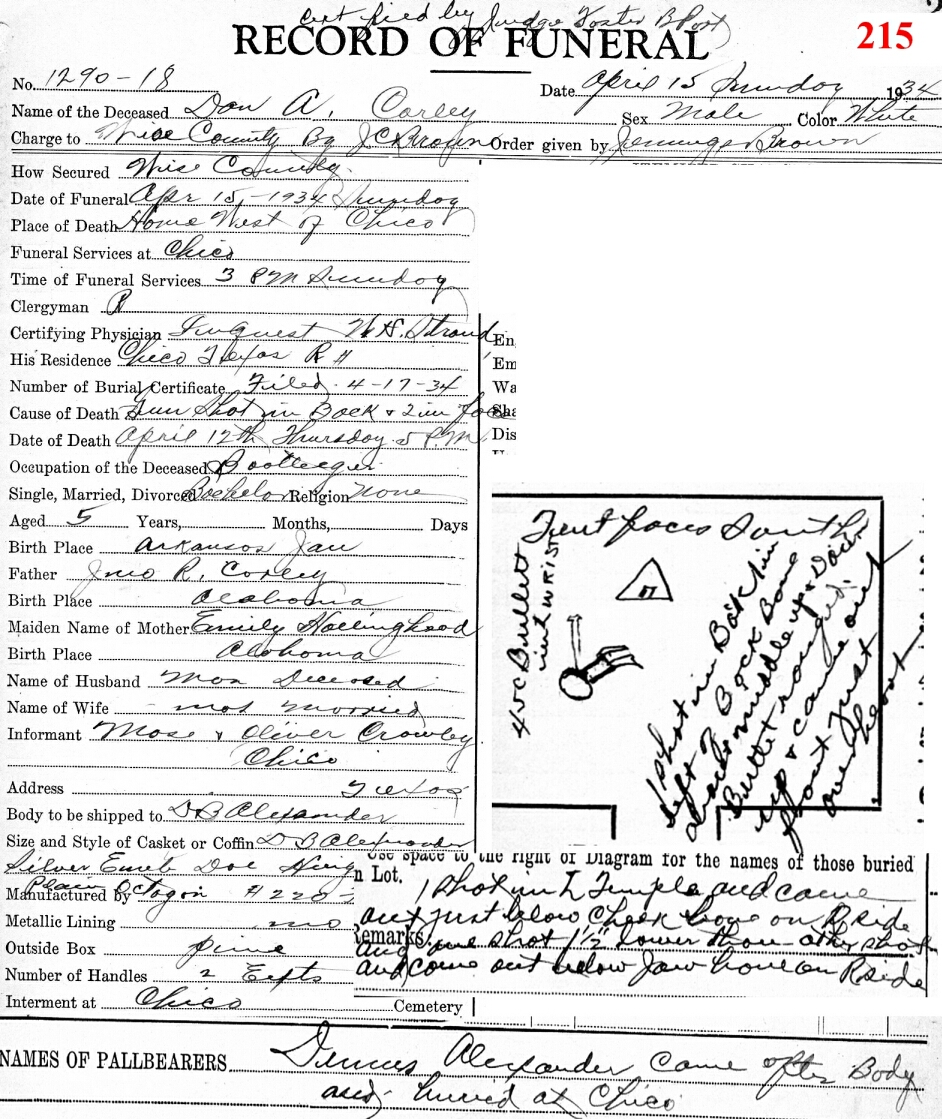 Cert filed by Judge Foster B Post
RECORD OF FUNERAL
215
No. 1290-18
Date April 15 Sunday 1934
Name of the Deceased Don A. Corley
Sex Male Color White
Charge to Wise County By J C Brown Order given by Jennings Brown
How Secured Wise County
Date of Funeral Apr 15-1934 Sunday
Place of Death Home West of Chico
Funeral Services at Chico
Time of Funeral Services 3 PM Sunday
Clergyman
Certifying Physician Inquest W.H. Stroud
His Residence Chico Texas R H
Number of Burial Certificate Filed 4-17-34
Cause of Death Gun Shot in Back & 2 in face
Date of Death April 12th Thursday 5 P.M.
Occupation of the Deceased Bootleger
Single, Married, Divorced Bachelor Religion None
Aged 5 Years, Months, Days
Birth Place Arkansas Jan
Father Jno R. Corley
Birth Place Alabama
Maiden Name of Mother Emily Hollinghead
Birth Place Alabama
Name of Husband Deceased
Name of Wife not married
Informant Mose & Oliver Crowley
Chico
Address Texas
Body to be shipped to D B Alexander
Size and Style of Casket or Coffin D B Alexander
Silver Emb Doe
Plain Octagon
Manufactured by # 220
Metallic Lining no
Outside Box pine
Number of Handles 2
Interment at Chico Cemetery
En
Em
Wa
Sha
Dis
Tent faces South
45 C Bullett in L wrist
1 shot in Back in
left of Back Bone
about middle up & down
Bullet ranged
up & came out
front just
over heart
Use space to the right of Diagram for the names of those buried
n Lot.
1 shot in L Temple and came
out just below cheek bone on R side
Remarks:
and one shot 1½" lower than other shot
and come out below Jaw bone on R side
NAMES OF PALLBEARERS Dennis Alexander came after Body
and buried at Chico